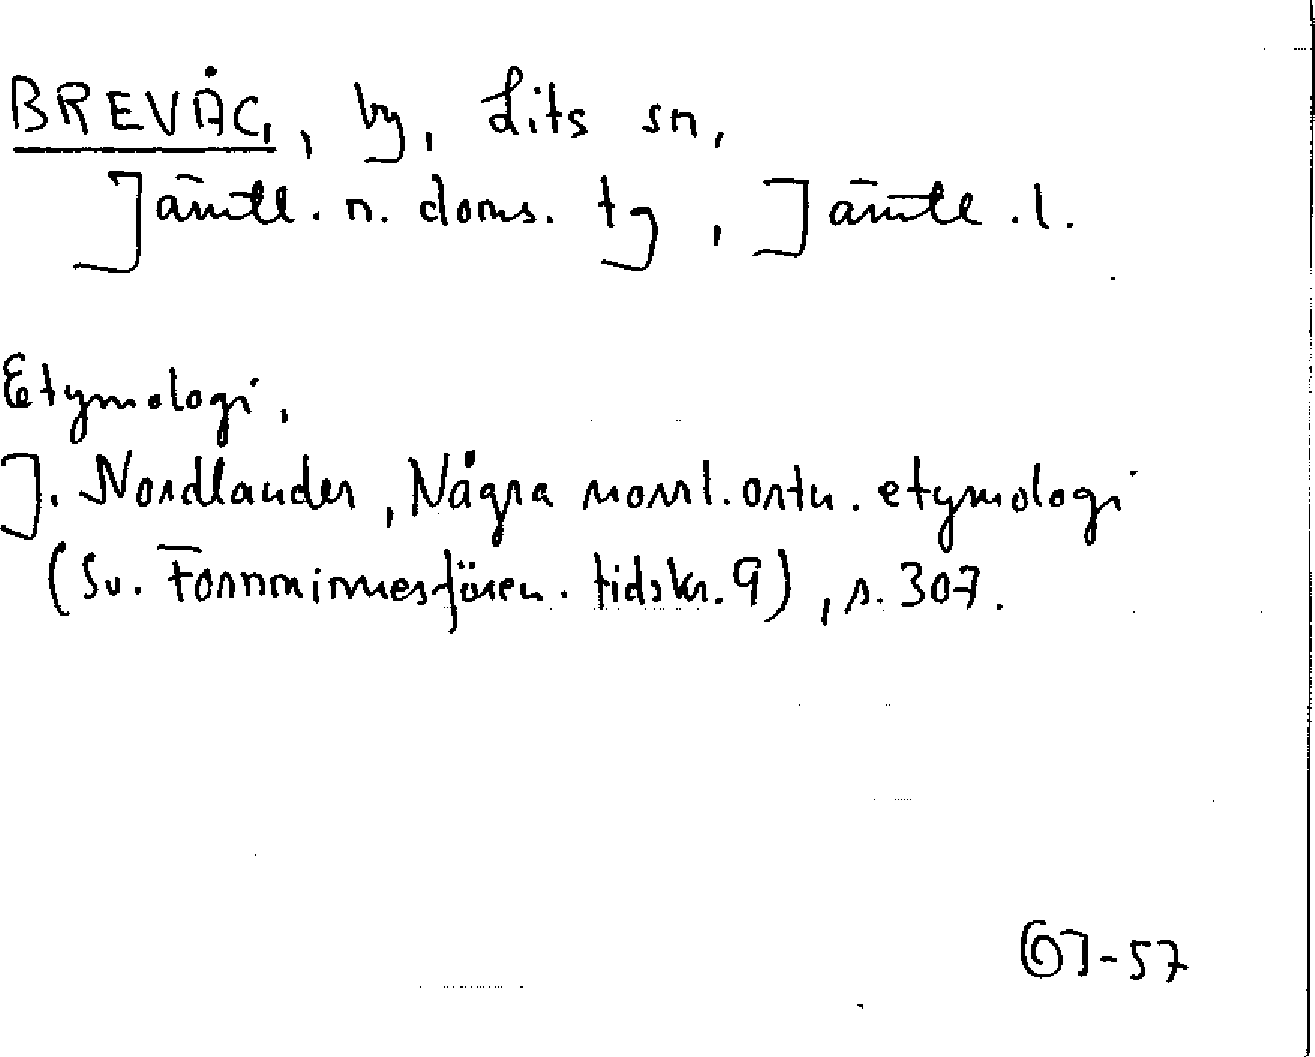 BREVÅG, by, Lits sn,
Jämtl. n. doms. tg, Jämtl. l.
Etymologi.
J. Nordlander, Några norrl. ortn. etymologi
(Sv. Fornminnesfören. tidskr. 9), s. 307.